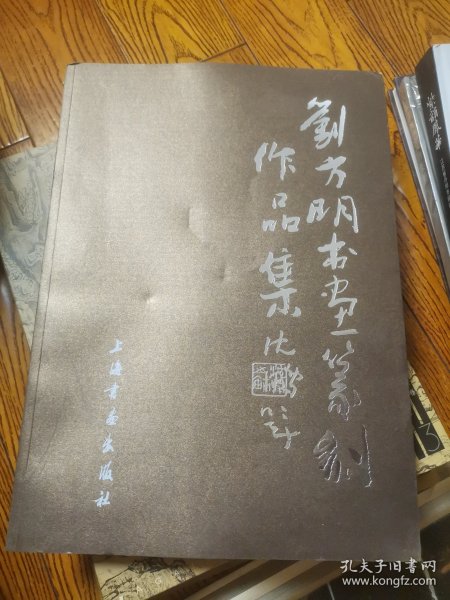 劉方明书畫篆刻
作品集
沈鹏题
上海书画出版社
13
孔夫子旧书网
www.kongfz.com